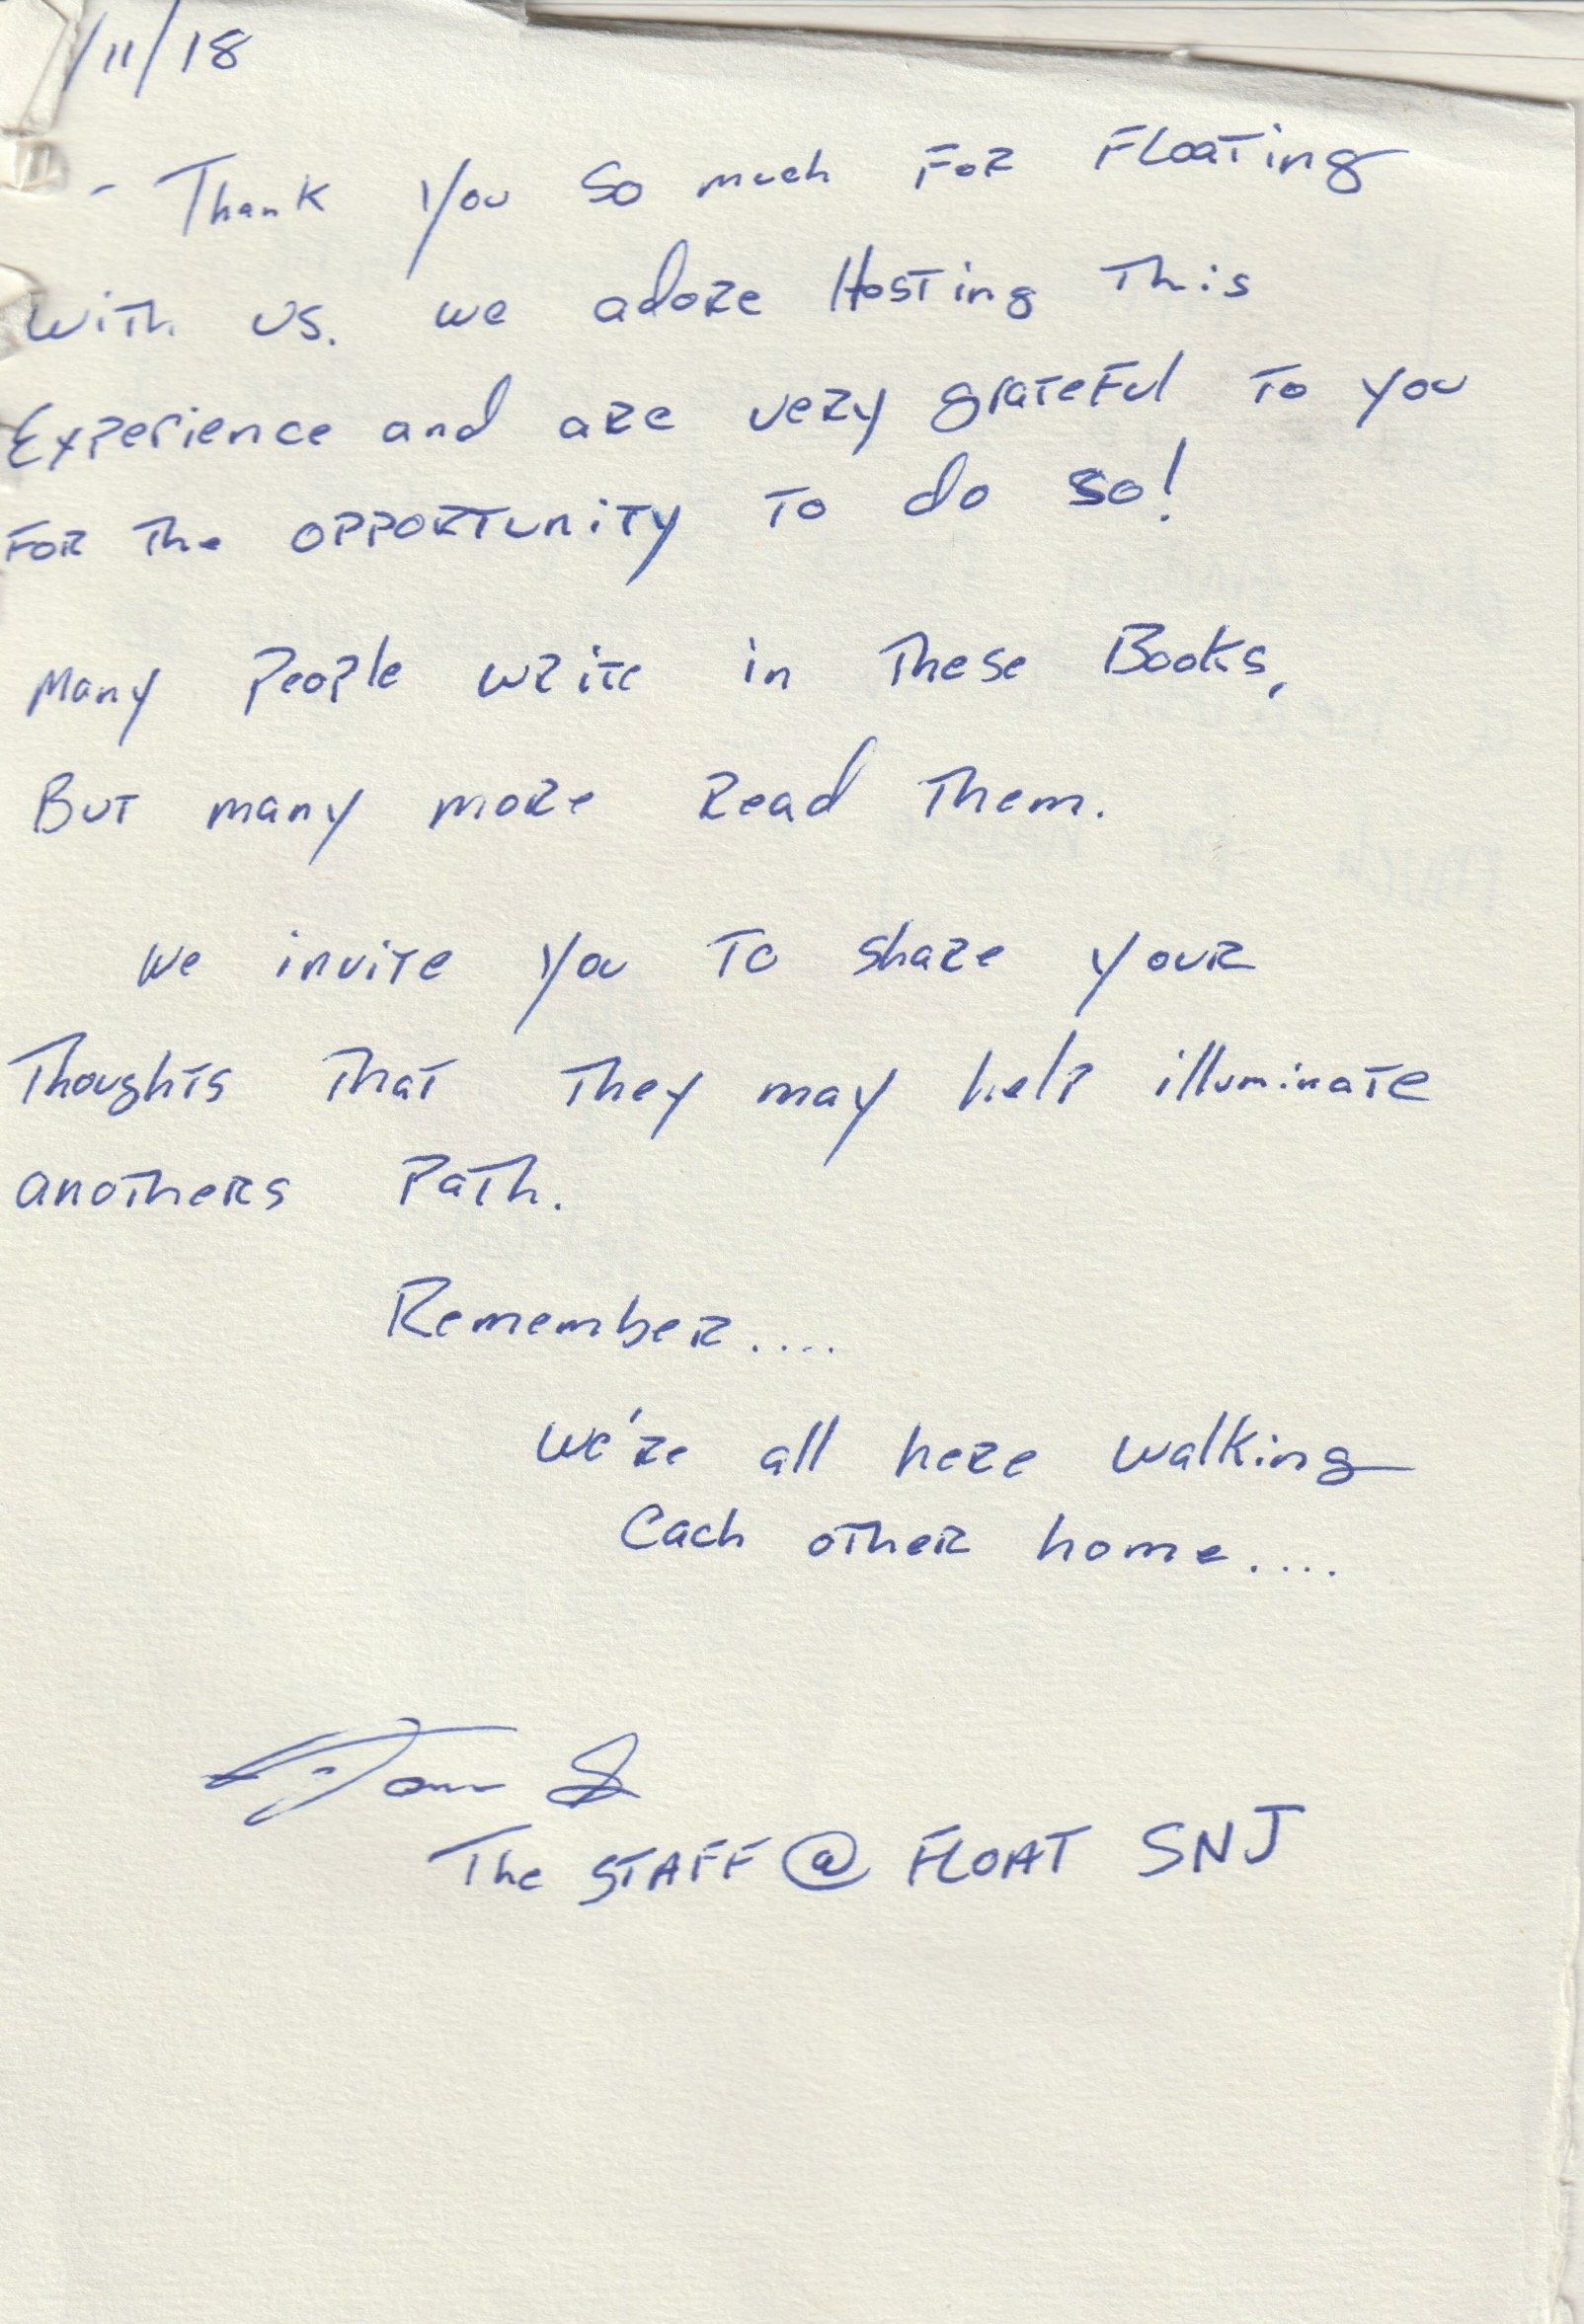 /11/18
- Thank you so much For Floating
with us. we adore Hosting This
Experience and are very grateful To you
For The opportunity To do so!
Many People write in These Books,
But many more Read Them.
We invite you To share your
Thoughts That They may help illuminate
anothers Path.
Remember....
We're all here walking
Each other home....
The STAFF @ FLOAT SNJ